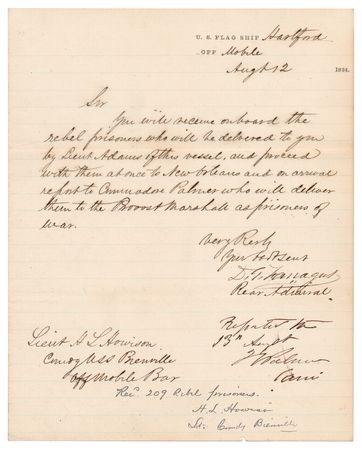 U. S. FLAG SHIP Hartford
OFF Mobile
Augt 12 1864.
Sir
You will receive on board the
rebel prisoners who will be delivered to you
by Lieut Adams of this vessel, and proceed
with them at once to New Orleans and on arrival
report to Commodore Palmer who will deliver
them to the Provost Marshall as prisoners of
war.
Very Resly
Your obdt Servt
D. G. Farragut
Rear Admiral
Lieut H L Howison
Comdg USS Bienville
off Mobile Bar
Reported to
13th Augt
Palmer
Rec. 209 Rebel prisoners.
H. L. Howison
Lt. Comdg Bienville